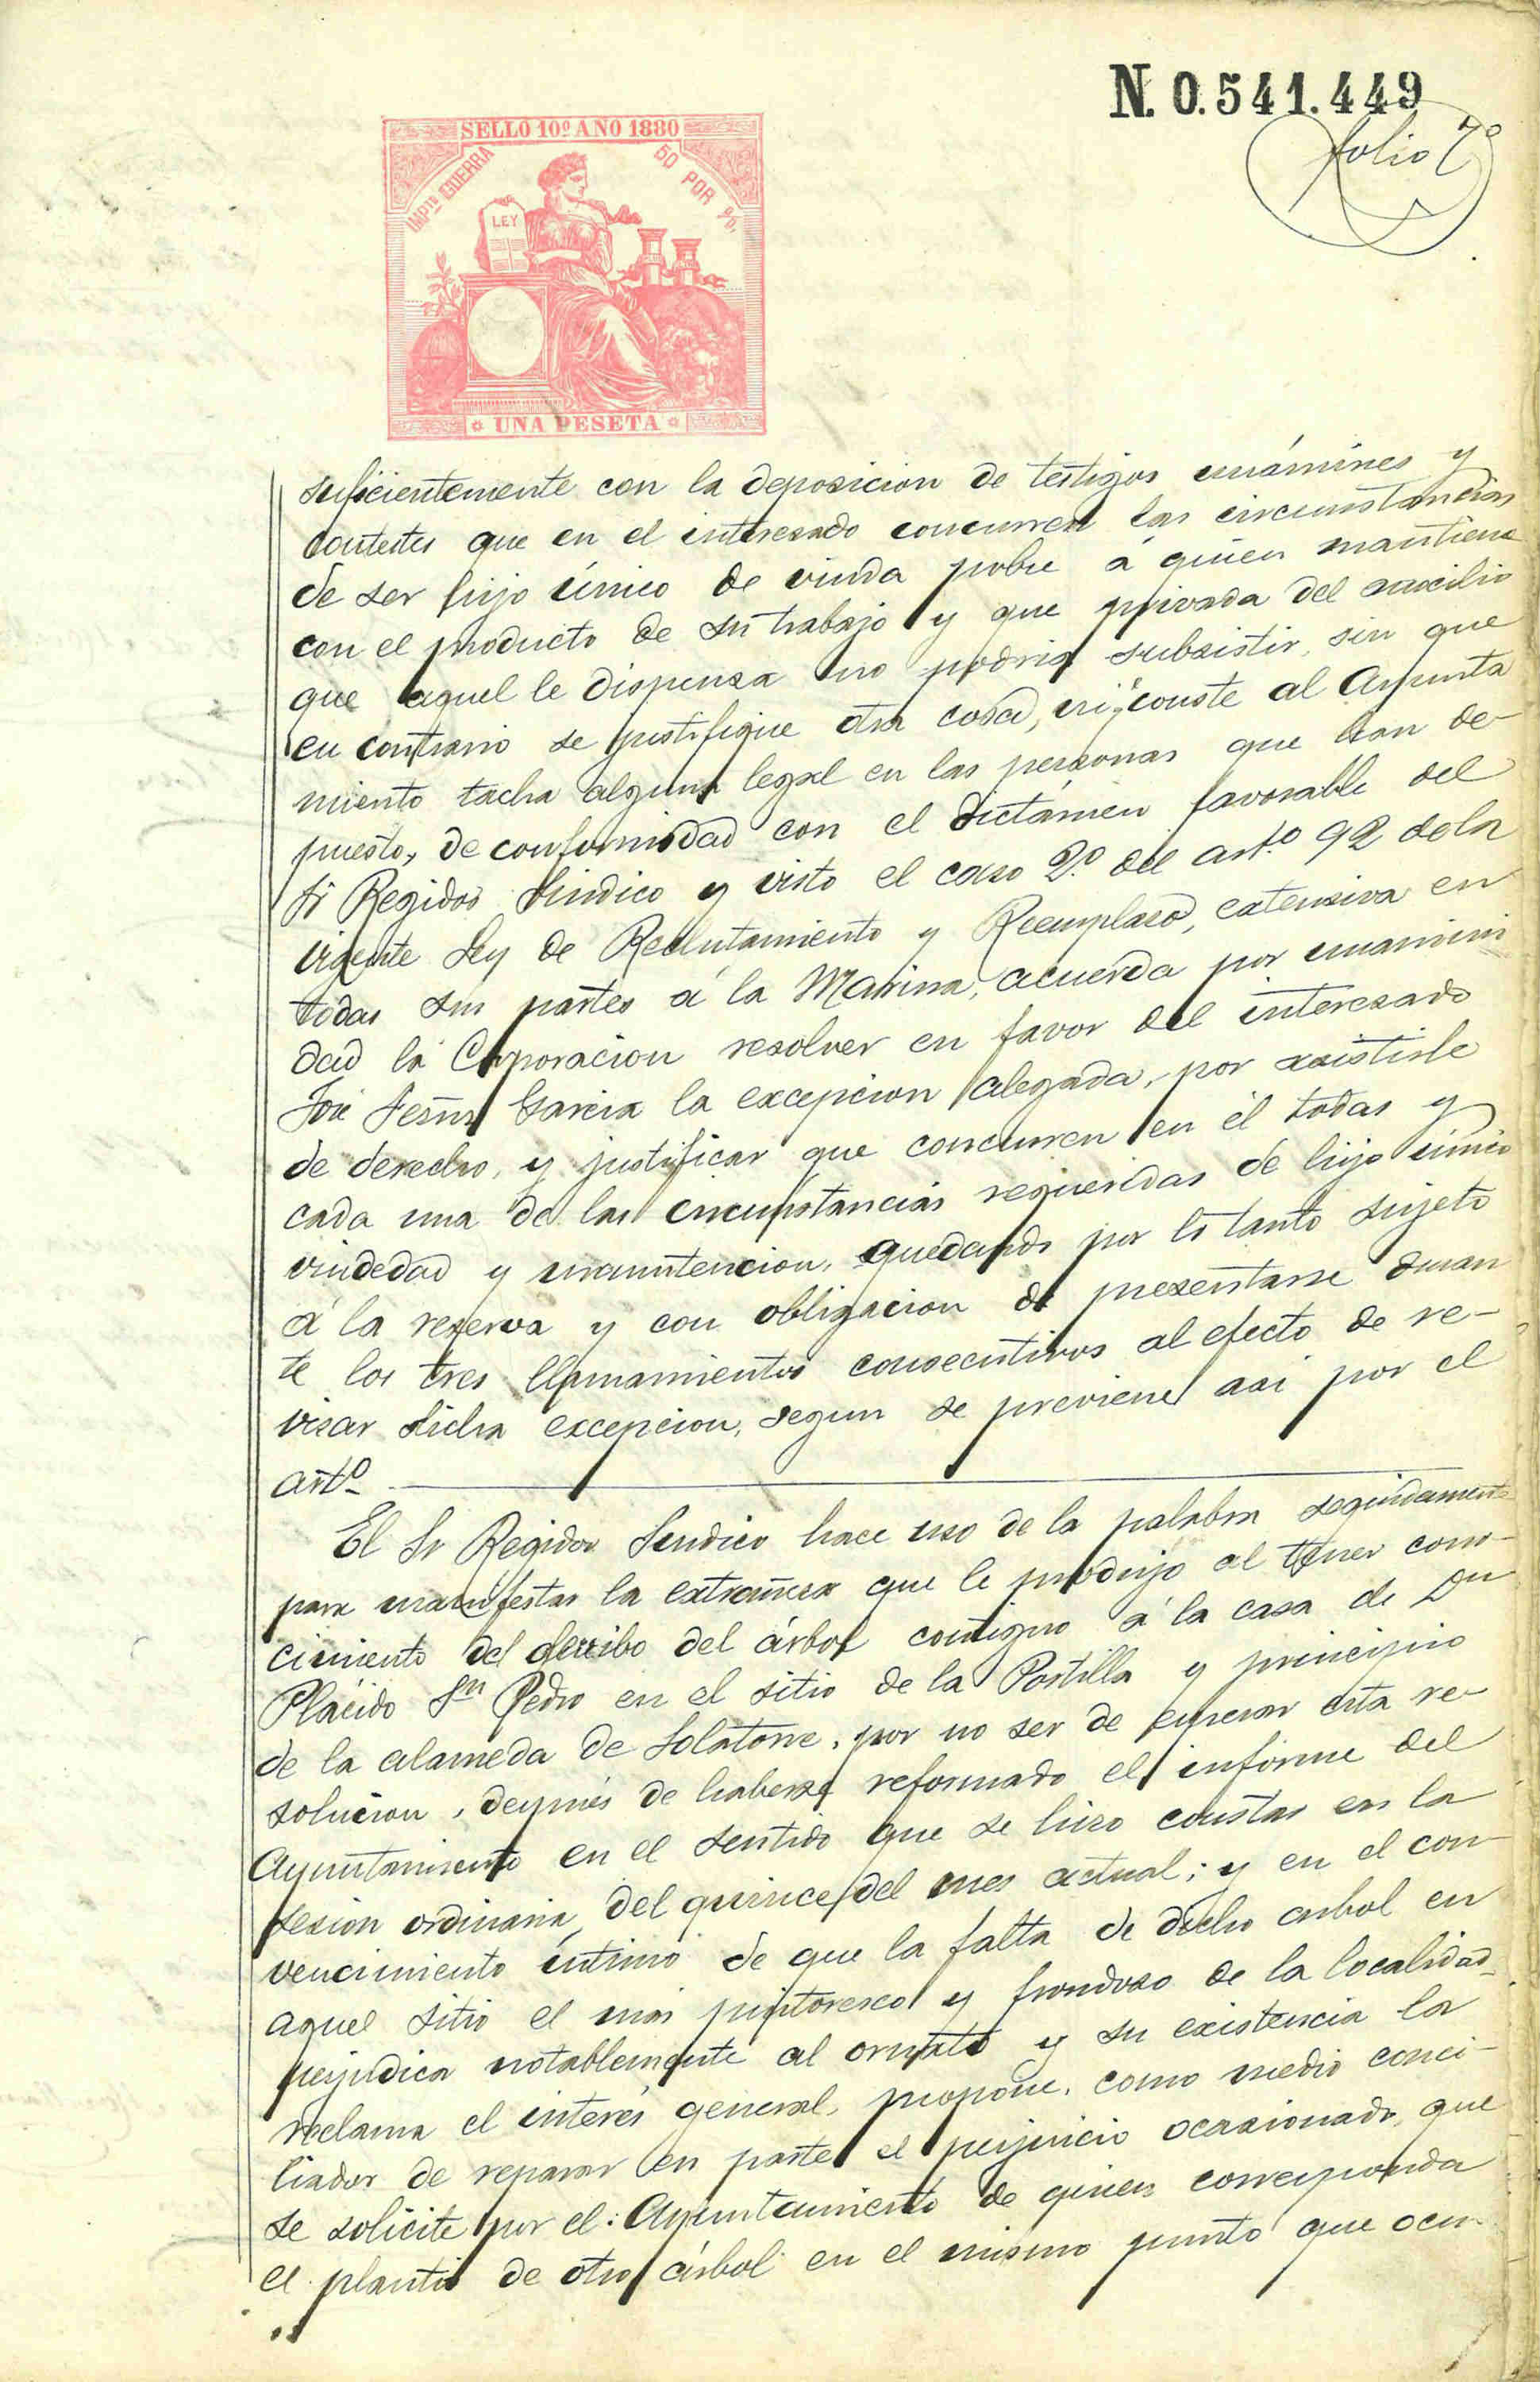 N. 0.541.449
folio 7º
SELLO 10º AÑO 1880
IMPTO GUERRA
50 POR %
LEY
UNA PESETA
suficientemente con la deposicion de testigos unánimes y
contestes que en el interesado concurren las circunstancias
de ser hijo único de viuda pobre á quien mantiene
con el producto de su trabajo y que privada del auxilio
que aquel le dispensa no podria subsistir, sin que
en contrario se justifique otra cosa, ni conste al Ayunta
miento tacha alguna legal en las personas que han de-
puesto, de conformidad con el dictámen favorable del
Sr Regidor Sindico y visto el caso 2º del artº 92 de la
vigente Ley de Reclutamiento y Reemplazo, extensiva en
todas sus partes á la Marina, acuerda por unanimi
dad la Corporacion resolver en favor del interesado
José Garcia la excepcion alegada, por asistirle
de derecho, y justificar que concurren en él todas y
cada una de las circunstancias requeridas de hijo único
viudedad y manutencion, quedando por lo tanto sujeto
á la reserva y con obligacion de presentarse duran
te los tres llamamientos consecutivos al efecto de re-
visar dicha excepcion, segun se previene asi por el
artº
El Sr Regidor Sindico hace uso de la palabra seguidamente
para manifestar la extrañeza que le produjo al tener cono-
cimiento del derribo del árbol contiguo á la casa de Dn
Plácido Sn Pedro en el sitio de la Portilla y principio
de la alameda de Solatorre, por no ser de esperar esta re-
solucion, despues de haberse reformado el informe del
Ayuntamiento en el sentido que se hizo constar en la
sesion ordinaria del quince del mes actual; y en el con
vencimiento íntimo de que la falta de dicho arbol en
aquel sitio el mas pintoresco y frondoso de la localidad
perjudica notablemente al ornato y su existencia la
reclama el interés general, propone, como medio conci-
liador de reparar en parte el perjuicio ocasionado, que
se solicite por el Ayuntamiento de quien corresponda
el plantio de otro árbol en el mismo punto que ocu